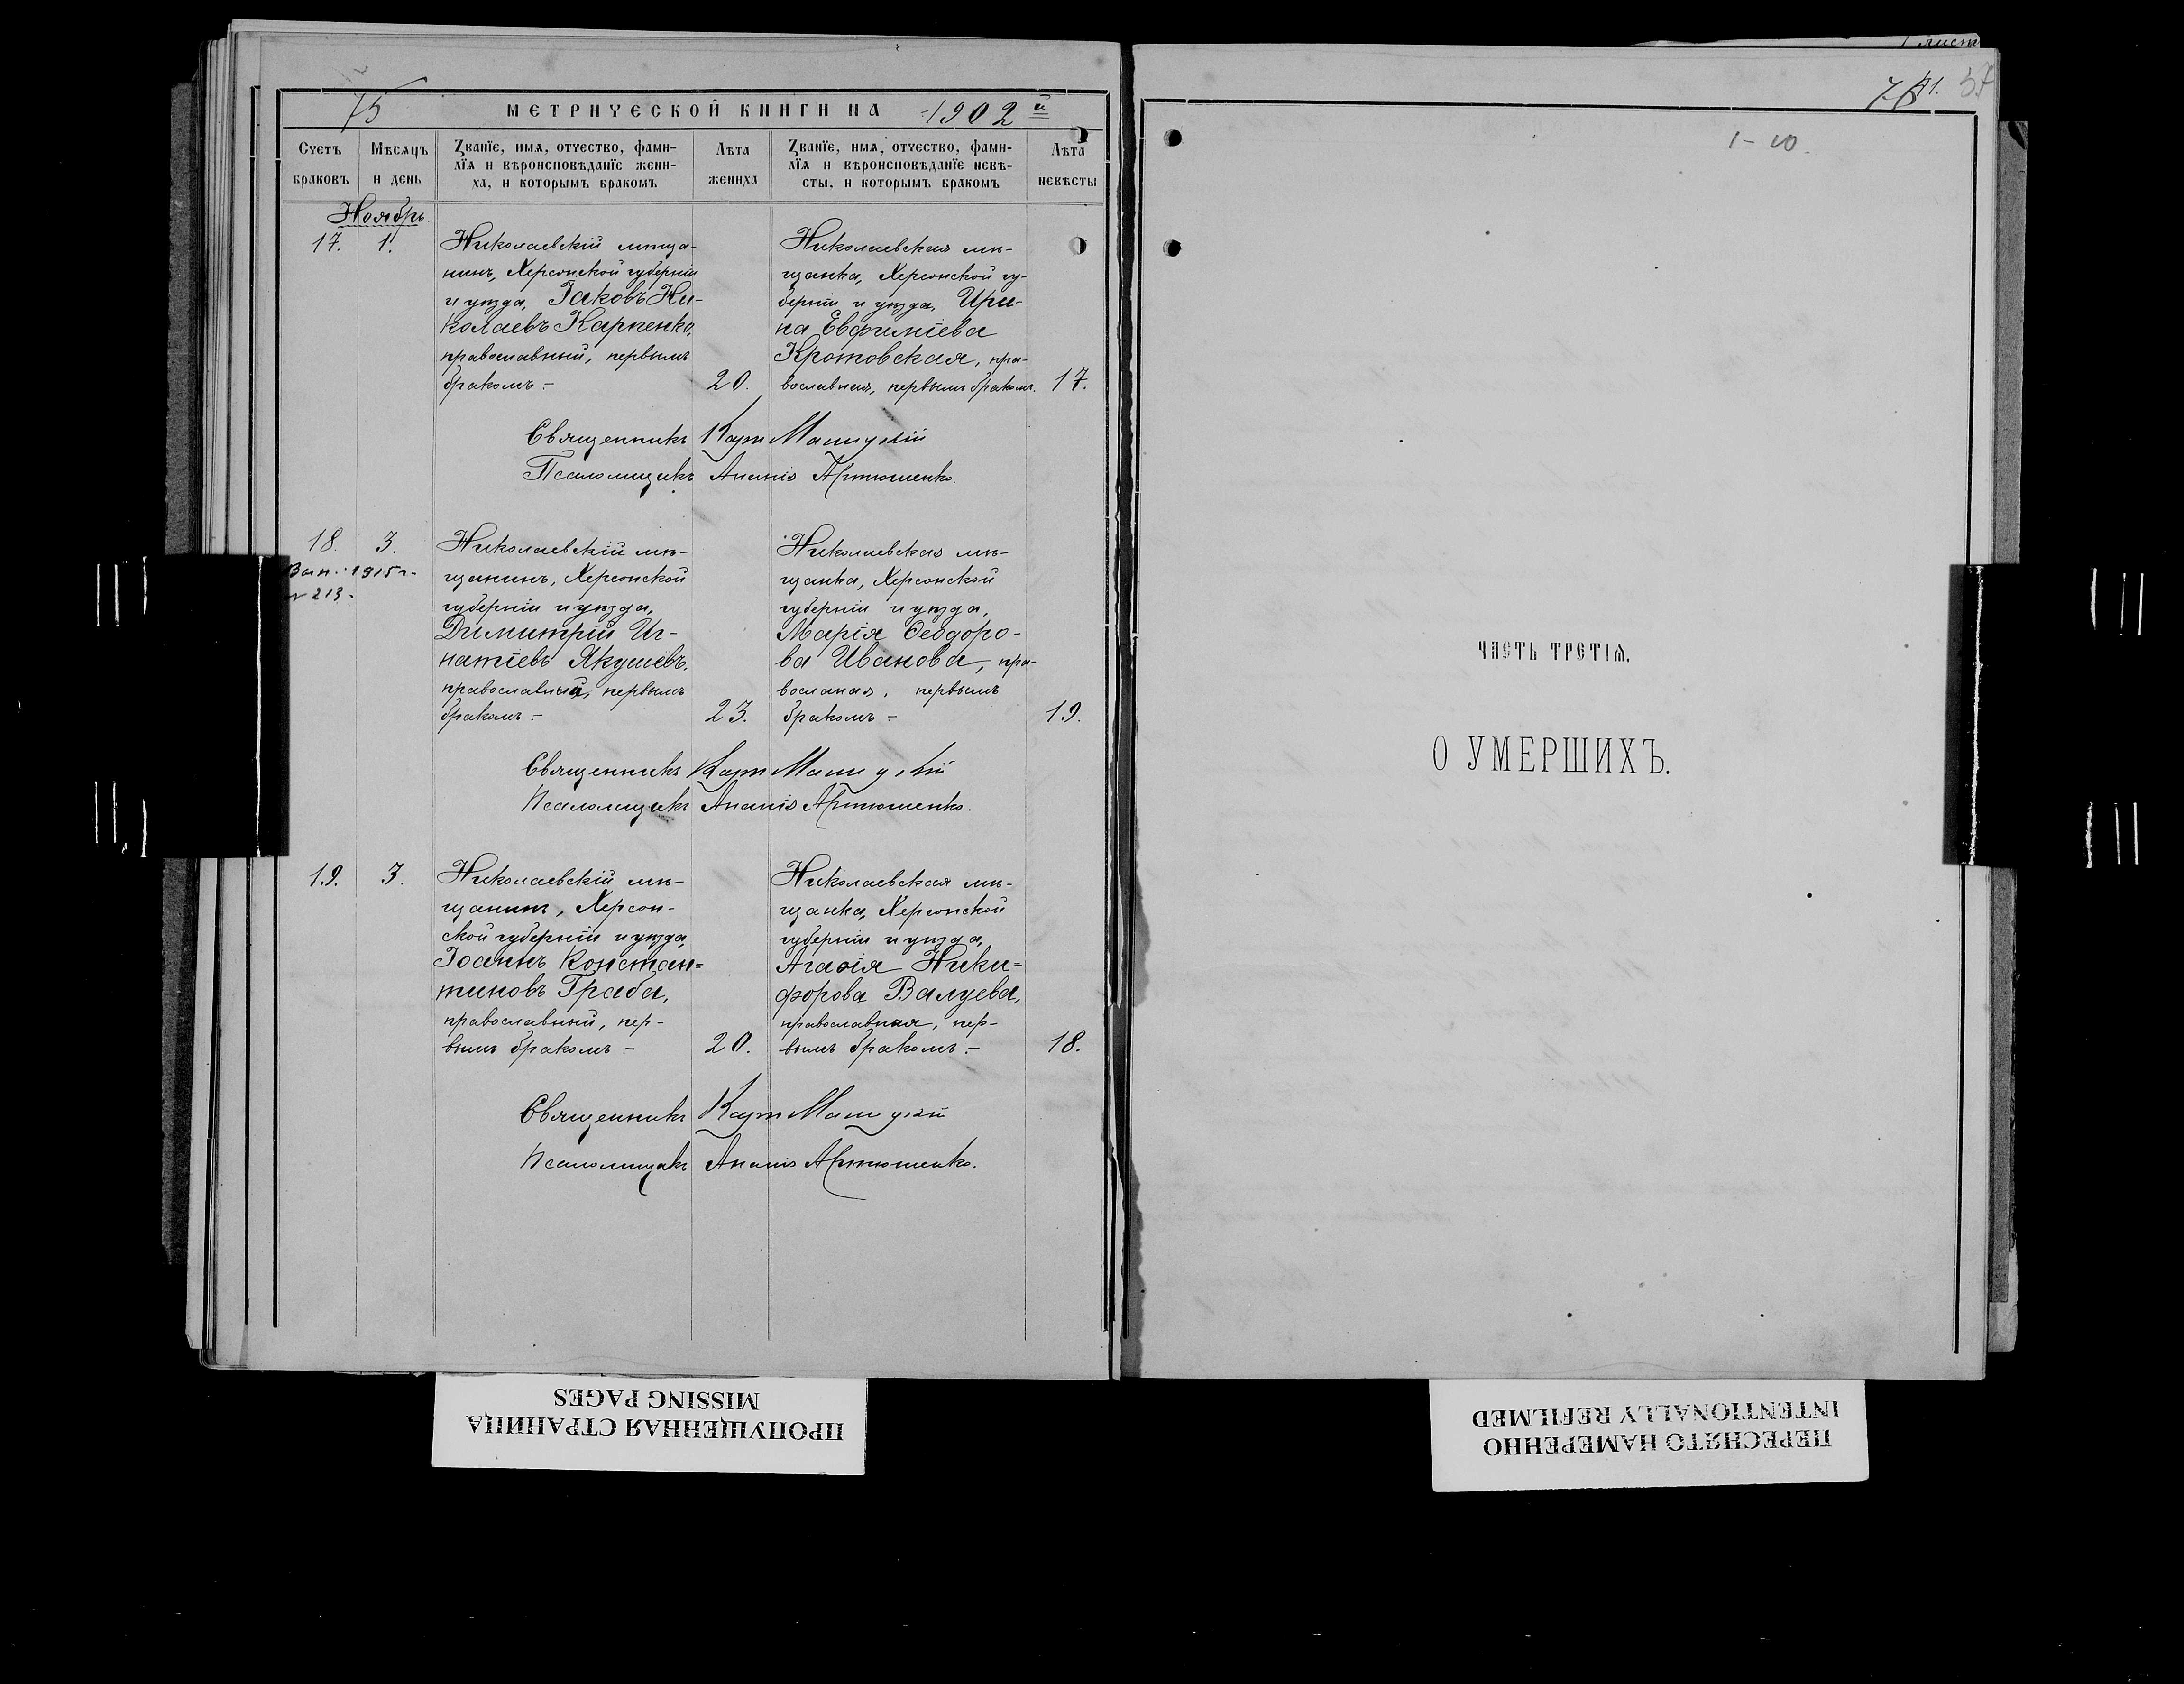 75
МЕТРИЧЕСКОЙ КНИГИ НА 1902й
Счетъ браковъ
Мѣсяцъ и день
Званїе, имя, отчество, фами-
лїя и вѣроисповѣданїе жени-
ха, и которымъ бракомъ
Лѣта жениха
Званїе, имя, отчество, фами-
лїя и вѣроисповѣданїе невѣ-
сты, и которымъ бракомъ
Лѣта невѣсты
Ноябрь.
17. 1.
Николаевскій мѣща-
нинъ, Херсонской губерніи
и уѣзда, Іаковъ Ни-
колаевъ Карпенко,
православный, первымъ
бракомъ.-
20.
Николаевская мѣ-
щанка, Херсонской гу-
берніи и уѣзда, Ири-
на Евфиміева
Кротовская, пра-
вославная, первымъ бракомъ.
17.
Священникъ
Псаломщикъ Ананія Артюшенко.
18. 3.
Вып. 1915 г.
№ 213.
Николаевскій мѣ-
щанинъ, Херсонской
губерніи и уѣзда,
Димитрій Иг-
натіевъ Якушевъ,
православный, первымъ
бракомъ.-
23.
Николаевская мѣ-
щанка, Херсонской
губерніи и уѣзда,
Марія Ѳеодоро-
ва Иванова, пра-
вославная, первымъ
бракомъ-
19.
Священникъ
Псаломщикъ Ананія Артюшенко.
19. 3.
Николаевскій мѣ-
щанинъ, Херсон-
ской губерніи и уѣзда,
Іоаннъ Констан=
тиновъ Граба,
православный, пер-
вымъ бракомъ.-
20.
Николаевская мѣ-
щанка, Херсонской
губерніи и уѣзда,
Агаѳія Ники=
форова Валуева,
православная, пер-
вымъ бракомъ.-
18.
Священникъ
Псаломщикъ Ананія Артюшенко.
ПРОПУЩЕННАЯ СТРАНИЦА
MISSING PAGES
1-10.
ЧАСТЬ ТРЕТІЯ,
О УМЕРШИХЪ.
ПЕРЕСНЯТО НАМЕРЕННО
INTENTIONALLY REFILMED